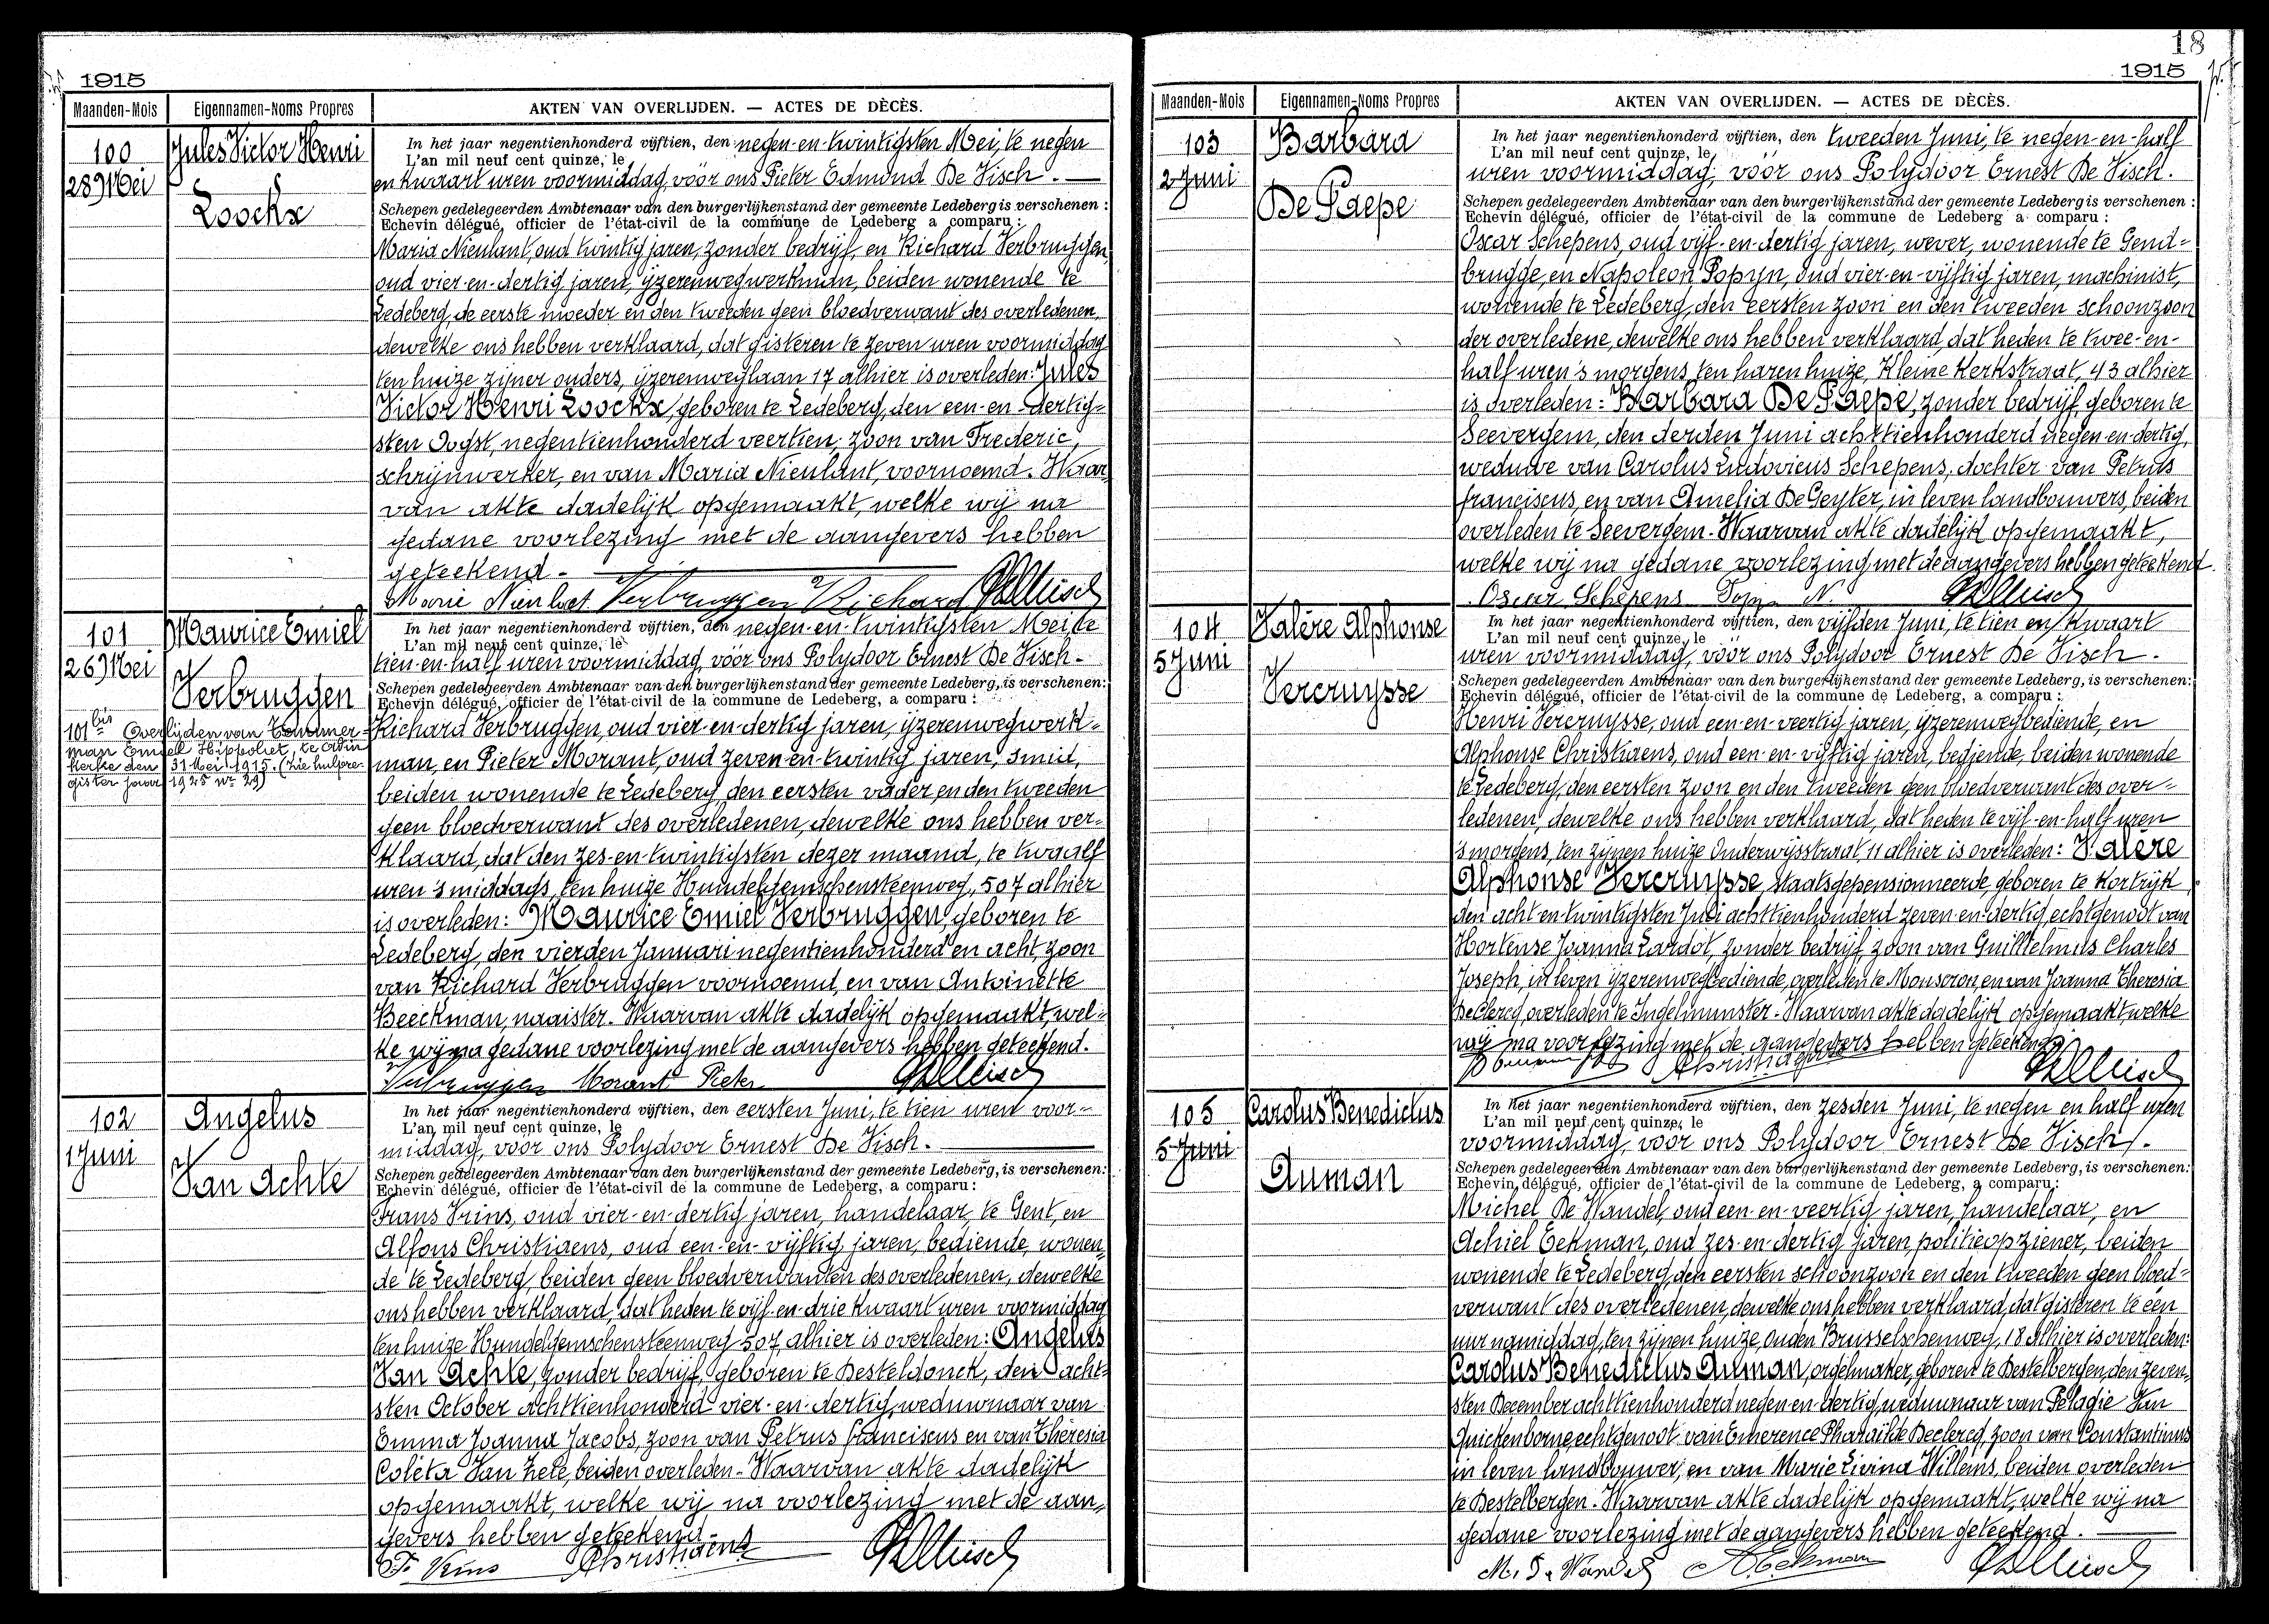 1915
Maanden-Mois Eigennamen-Noms Propres AKTEN VAN OVERLIJDEN. — ACTES DE DÈCÈS.
100
28 Mei
Jules Victor Henri
Loockx
In het jaar negentienhonderd vijftien, den negen-en-twintigsten Mei, te negen
L'an mil neuf cent quinze, le
en kwaart uren voormiddag, vóór ons Pieter Edmond De Visch. —
Schepen gedelegeerden Ambtenaar van den burgerlijkenstand der gemeente Ledeberg is verschenen :
Echevin délégué, officier de l'état-civil de la commune de Ledeberg a comparu :
Maria Nieulant, oud twintig jaren, zonder bedrijf, en Richard Verbruggen,
oud vier-en-dertig jaren, ijzerenwegwerkman, beiden wonende te
Ledeberg, de eerste moeder en den tweeden geen bloedverwant des overledenen,
dewelke ons hebben verklaard, dat gisteren te zeven uren voormiddag
ten huize zijner ouders, ijzerenweglaan 17 alhier is overleden: Jules
Victor Henri Loockx, geboren te Ledeberg, den een-en-dertig-
sten Oogst, negentienhonderd veertien, zoon van Frederic,
schrijnwerker, en van Maria Nieulant, voornoemd. Waar
van akte dadelijk opgemaakt, welke wij na
gedane voorlezing met de aangevers hebben
geteekend. —
Marie Nieulant Verbruggen Richard
101
26 Mei
Maurice Emiel
Verbruggen
101bis Overlijden van
man Emiel Hippoliet, te
kerke den 31 Mei 1915. (zie hulpre-
gister jaar 1925 nr 29)
In het jaar negentienhonderd vijftien, den negen-en-twintigsten Mei, te
L'an mil neuf cent quinze, le
tien-en-half uren voormiddag, vóór ons Polydoor Ernest De Visch.
Schepen gedelegeerden Ambtenaar van den burgerlijkenstand der gemeente Ledeberg, is verschenen:
Echevin délégué, officier de l'état-civil de la commune de Ledeberg, a comparu :
Richard Verbruggen, oud vier-en-dertig jaren, ijzerenwegwerk-
man, en Pieter Morant, oud zeven-en-twintig jaren, smid,
beiden wonende te Ledeberg den eersten vader en den tweeden
geen bloedverwant des overledenen, dewelke ons hebben ver-
klaard, dat den zes-en-twintigsten dezer maand, te twaalf
uren 's middags, ten huize Hundelgemschensteenweg, 507 alhier
is overleden: Maurice Emiel Verbruggen, geboren te
Ledeberg, den vierden Januari negentienhonderd en acht, zoon
van Richard Verbruggen voornoemd, en van Antoinette
Beeckman, naaister. Waarvan akte dadelijk opgemaakt, wel-
ke wij na gedane voorlezing met de aangevers hebben geteekend.
Verbruggen Morant Pieter
102
1 Juni
Angelus
Van Achte
In het jaar negentienhonderd vijftien, den eersten Juni, te tien uren voor-
L'an mil neuf cent quinze, le
middag, vóór ons Polydoor Ernest De Visch. —
Schepen gedelegeerden Ambtenaar van den burgerlijkenstand der gemeente Ledeberg, is verschenen:
Echevin délégué, officier de l'état-civil de la commune de Ledeberg, a comparu :
Frans Vrins, oud vier-en-dertig jaren, handelaar, te Gent, en
Alfons Christiaens, oud een-en-vijftig jaren, bediende, wonen-
de te Ledeberg, beiden geen bloedverwanten des overledenen, dewelke
ons hebben verklaard, dat heden te vijf-en-drie kwaart uren voormiddag
ten huize Hundelgemschensteenweg 507, alhier is overleden: Angelus
Van Achte, zonder bedrijf, geboren te Desteldonck, den acht-
sten October achttienhonderd vier-en-dertig, weduwnaar van
Emma Joanna Jacobs, zoon van Petrus Franciscus en van Thèresia
Coleta Van Hele, beiden overleden. Waarvan akte dadelijk
opgemaakt, welke wij na voorlezing met de aan-
gevers hebben geteekend.
F. Vrins AChristiaens
18
1915
Maanden-Mois Eigennamen-Noms Propres AKTEN VAN OVERLIJDEN. — ACTES DE DÈCÈS.
103
2 Juni
Barbara
De Paepe
In het jaar negentienhonderd vijftien, den tweeden Juni, te negen-en-half
L'an mil neuf cent quinze, le
uren voormiddag, vóór ons Polydoor Ernest De Visch.
Schepen gedelegeerden Ambtenaar van den burgerlijkenstand der gemeente Ledeberg is verschenen :
Echevin délégué, officier de l'état-civil de la commune de Ledeberg a comparu :
Oscar Schepens, oud vijf-en-dertig jaren, wever, wonende te Gend-
brugge, en Napoleon Popyn, oud vier-en-vijftig jaren, machinist,
wonende te Ledeberg, den eersten zoon en den tweeden schoonzoon
der overledene, dewelke ons hebben verklaard, dat heden te twee-en-
half uren 's morgens, ten haren huize, Kleine Kerkstraat, 43 alhier
is overleden: Barbara De Paepe, zonder bedrijf, geboren te
Seevergem, den derden Juni achttienhonderd negen-en-dertig,
weduwe van Carolus Ludovicus Schepens, dochter van Petrus
franciscus, en van Amelia De Geyter, in leven landbouwers, beiden
overleden te Seevergem. Waarvan akte dadelijk opgemaakt,
welke wij na gedane voorlezing met de aangevers hebben geteekend.
Oscar Schepens Popyn N.
104
5 Juni
Valère Alphonse
Vercruysse
In het jaar negentienhonderd vijftien, den vijfden Juni, te tien en kwaart
L'an mil neuf cent quinze, le
uren voormiddag, vóór ons Polydoor Ernest De Visch.
Schepen gedelegeerden Ambtenaar van den burgerlijkenstand der gemeente Ledeberg, is verschenen:
Echevin délégué, officier de l'état-civil de la commune de Ledeberg, a comparu :
Henri Vercruysse, oud een-en-veertig jaren, ijzerenwegbediende, en
Alphonse Christiaens, oud een-en-vijftig jaren, bediende, beiden wonende
te Ledeberg, den eersten zoon en den tweeden geen bloedverwant des over-
ledenen, dewelke ons hebben verklaard, dat heden te vijf-en-half uren
's morgens, ten zijnen huize Onderwijsstraat, 11 alhier is overleden: Valère
Alphonse Vercruysse, staatsgepensionneerde, geboren te Kortrijk
den acht-en-twintigsten Juli achttienhonderd zeven-en-dertig, echtgenoot van
Hortense Joanna Lardot, zonder bedrijf, zoon van Guillielmus Charles
Joseph, in leven ijzerenwegbediende, overleden te Mouscron, en van Joanna Theresia
De Clercq, overleden te Ingelmunster. Waarvan akte dadelijk opgemaakt, welke
wij na voorlezing met de aangevers hebben geteekend.
AChristiaens
105
5 Juni
Carolus Benedictus
Auman
In het jaar negentienhonderd vijftien, den zesden Juni, te negen en half uren
L'an mil neuf cent quinze, le
voormiddag, vóór ons Polydoor Ernest De Visch.
Schepen gedelegeerden Ambtenaar van den burgerlijkenstand der gemeente Ledeberg, is verschenen:
Echevin délégué, officier de l'état-civil de la commune de Ledeberg, a comparu :
Michel De Wandel, oud een-en-veertig jaren, handelaar, en
Achiel Eekman, oud zes-en-dertig jaren, politieopziener, beiden
wonende te Ledeberg, den eersten schoonzoon en den tweeden geen bloed-
verwant des overledenen, dewelke ons hebben verklaard, dat gisteren te één
uur namiddag, ten zijnen huize, Ouden Brusselschenweg, 18 alhier is overleden:
Carolus Benedictus Auman, orgelmaker, geboren te Destelbergen, den zeven-
sten December achttienhonderd negen-en-dertig, weduwnaar van Pelagie Van
Quickenborne, echtgenoot van Emerence Pharaïlde Declercq, zoon van Constantinus
in leven landbouwer, en van Marie Livina Willems, beiden overleden
te Destelbergen. Waarvan akte dadelijk opgemaakt, welke wij na
gedane voorlezing met de aangevers hebben geteekend. —
M. De Wandel AEekman